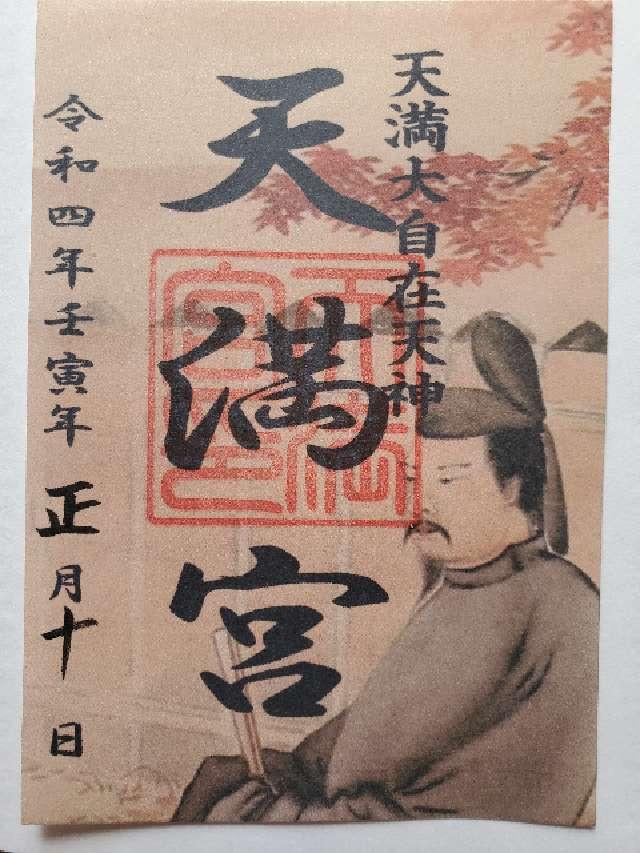 天満大自在天神
天満宮
天満宮璽
令和四年壬寅年正月十日